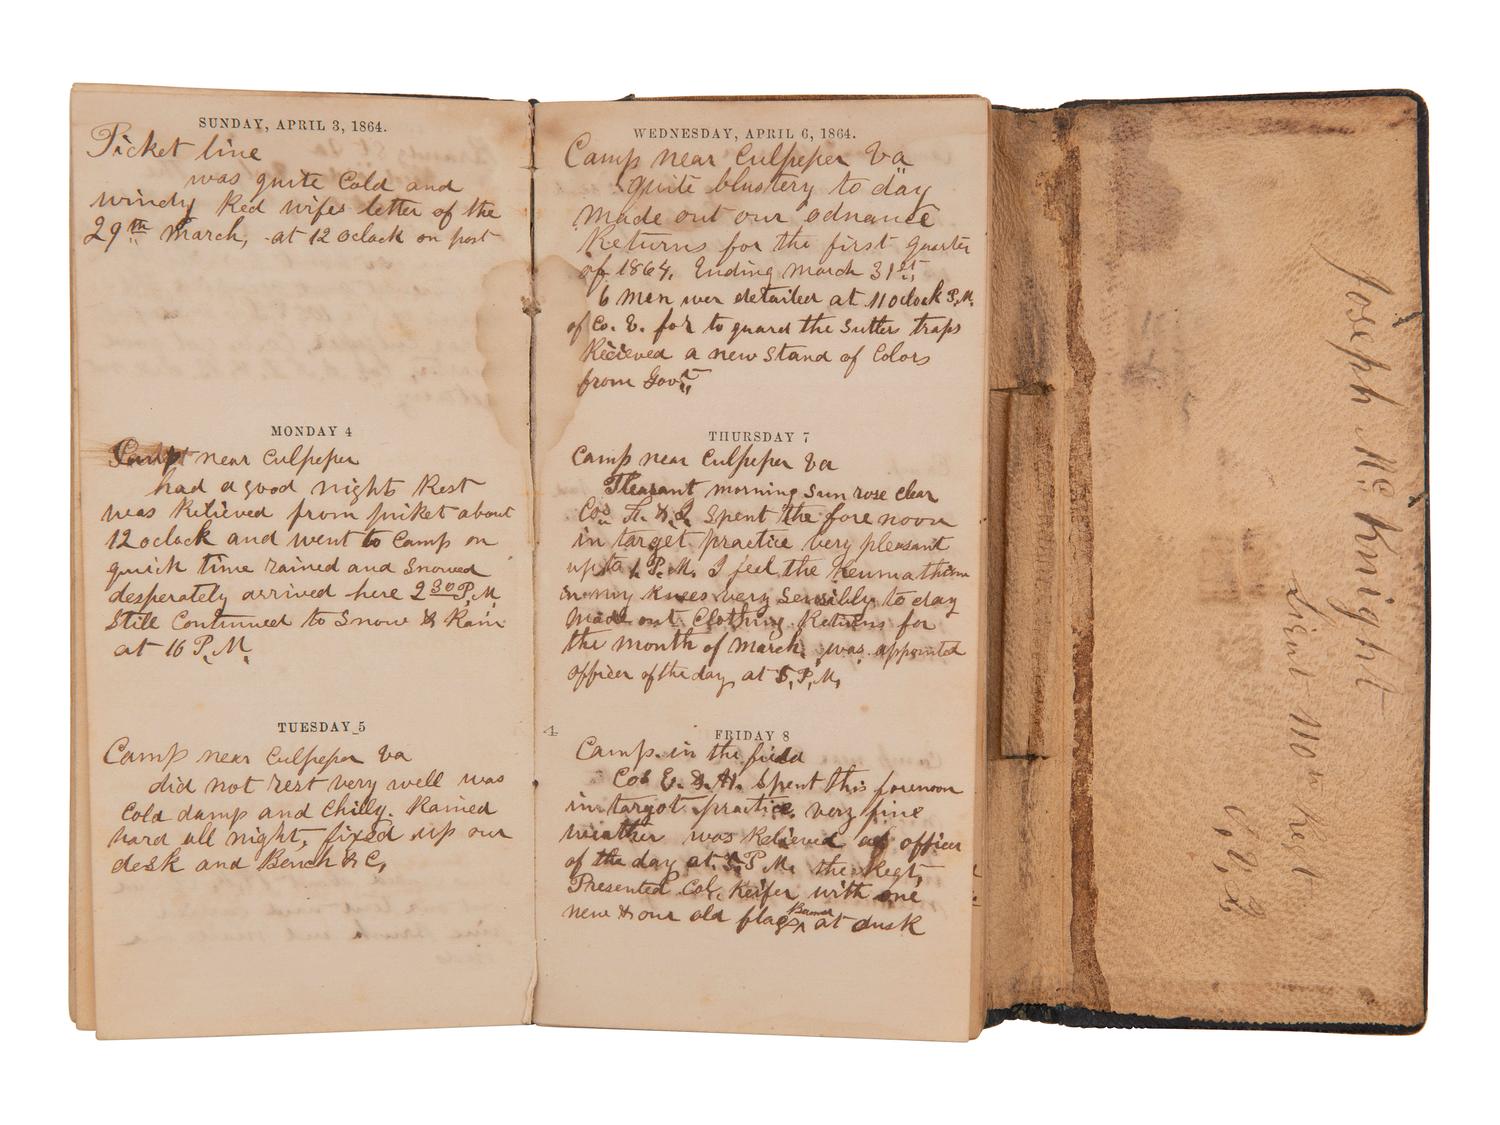 SUNDAY, APRIL 3, 1864.
Picket line
was quite Cold and
windy Red wifes letter of the
29th March, at 12 oclock on post
MONDAY 4
Camp near Culpeper
had a good nights Rest
was Relieved from picket about
12 oclock and went to Camp on
quick time rained and Snowed
desperately arrived here 2 30 P.M.
Still Continued to Snow & Rain
at 10 P.M.
TUESDAY 5
Camp near Culpeper Va
did not rest very well was
Cold damp and Chilly. Rained
hard all night, fixed up our
desk and Bench &C,
WEDNESDAY, APRIL 6, 1864.
Camp near Culpeper Va
quite blustery to day
made out our odnance
Returns for the first quarter
of 1864. Ending March 31st
6 men wer detailed at 11 oclock P.M.
of Co. E. for to guard the Sutlers traps
Recieved a new Stand of Colors
from Govt.
THURSDAY 7
Camp near Culpeper Va
Pleasant morning Sun rose clear
Cos Spent the fore noon
in target practice very pleasant
up to P.M. I feel the
in my knees very Sensibly to day
Made out Clothing Returns for
the month of March. was appointed
officer of the day at 5, P,M,
4
FRIDAY 8
Camp in the field
Cos E. & H. Spent this forenoon
in target practice. very fine
weather was Relieved as officer
of the day at 5. P.M. the Regt,
Presented Col, Keifer with one
new & our old flags, at dusk
Joseph Mc Knight
Lieut 110 Regt
O. V. I.